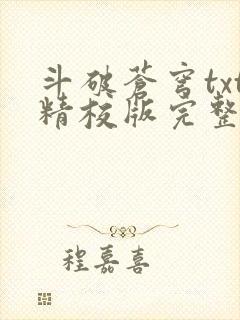 斗破苍穹txt
精校版完整
程嘉喜